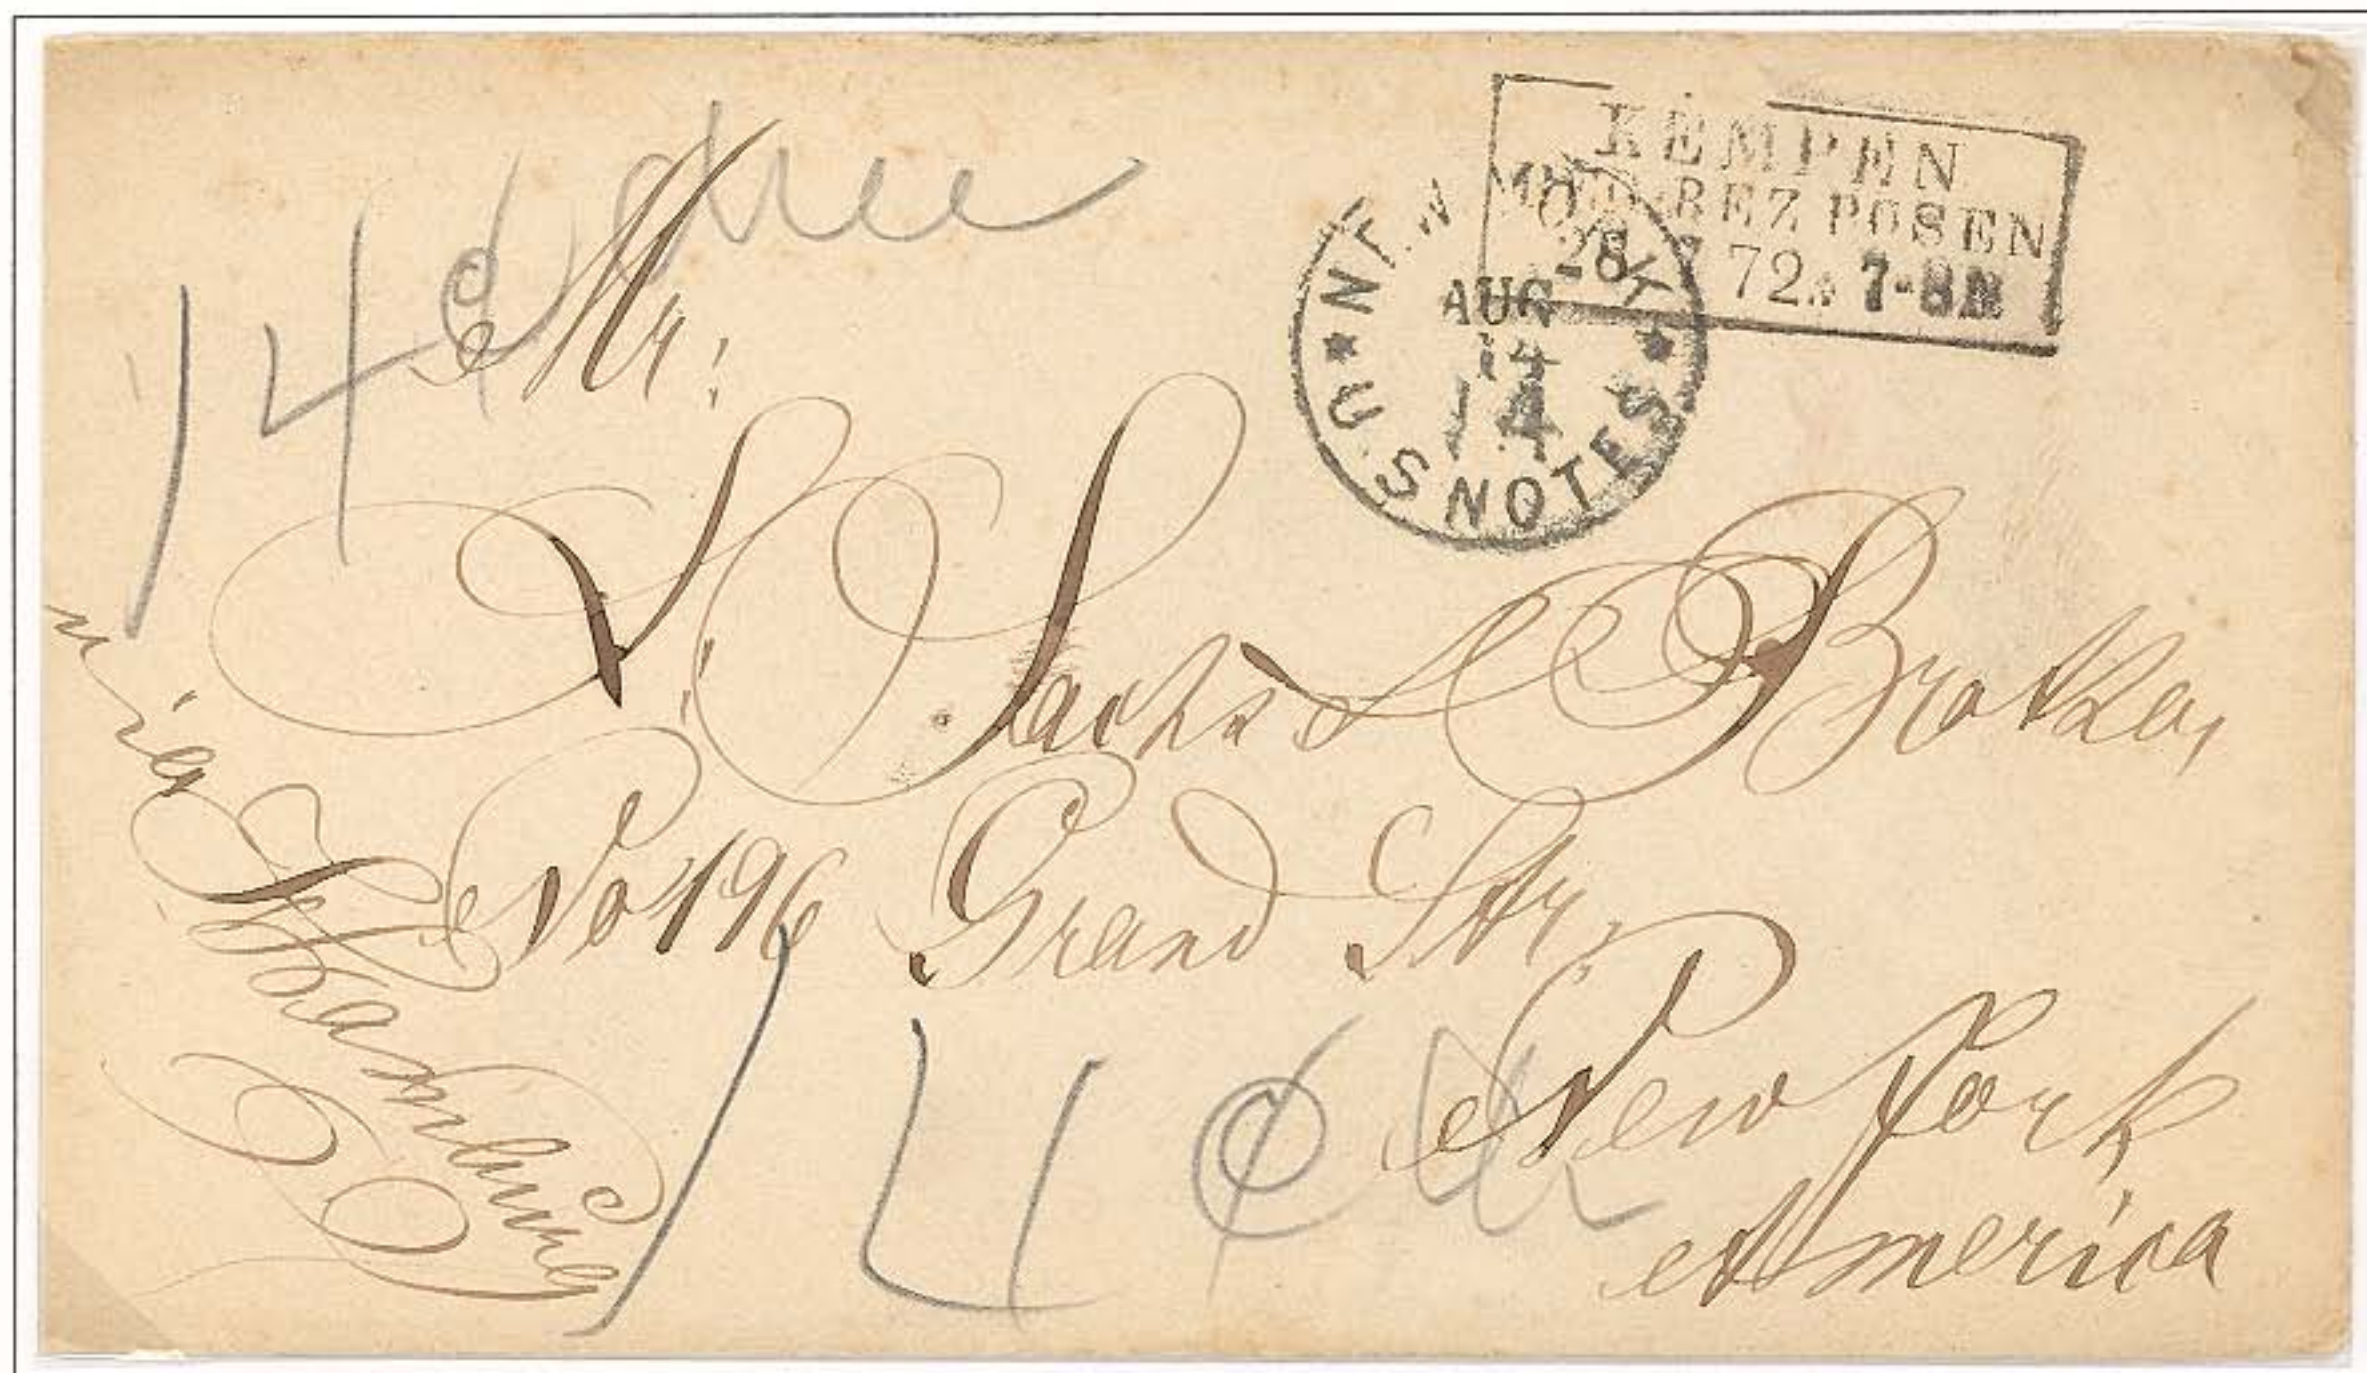 KEMPEN
REG. BEZ POSEN
28 7 72 7-8N
NEW YORK
AUG
14
14
U.S NOTES
14 ¢ due
Mr:
V. Sachs & Brother,
No 196 Grand Str.
New York
America
via Hamburg
14 ¢